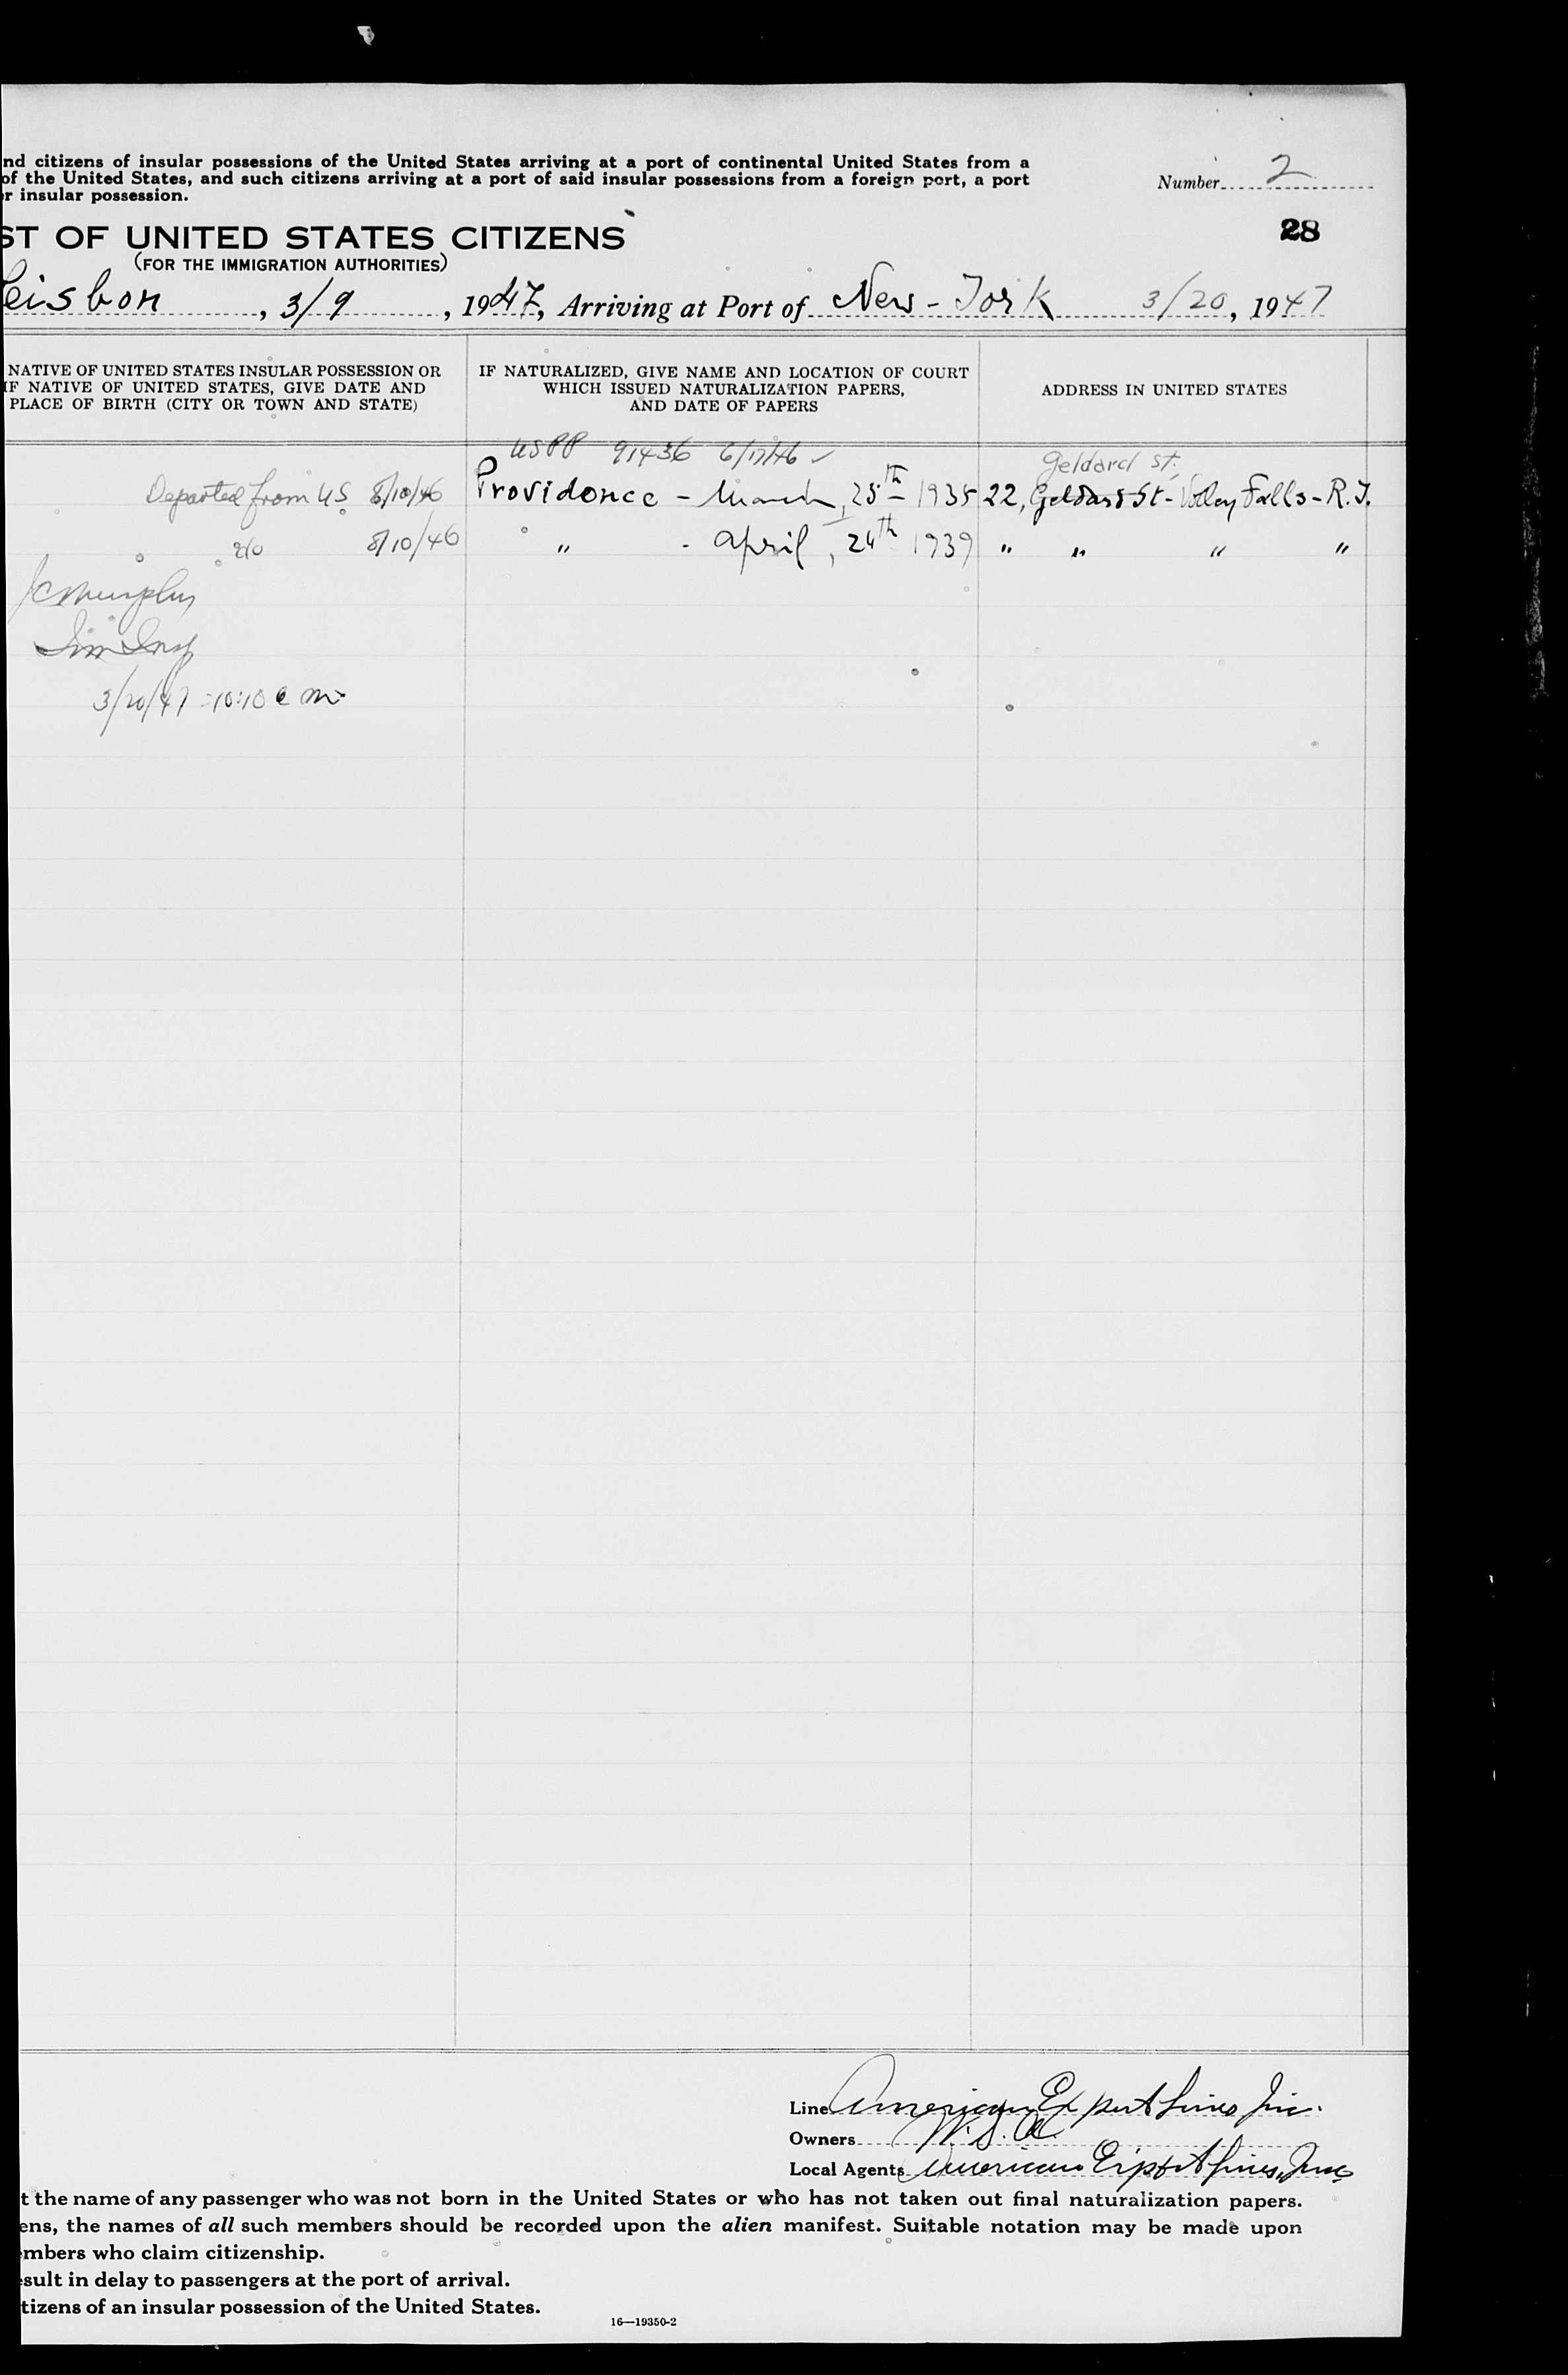 nd citizens of insular possessions of the United States arriving at a port of continental United States from a
of the United States, and such citizens arriving at a port of said insular possessions from a foreign port, a port
r insular possession.
Number 2
28
ST OF UNITED STATES CITIZENS
(FOR THE IMMIGRATION AUTHORITIES)
Leisbon, 3/9, 1947, Arriving at Port of New-York 3/20, 1947
NATIVE OF UNITED STATES INSULAR POSSESSION OR
IF NATIVE OF UNITED STATES, GIVE DATE AND
PLACE OF BIRTH (CITY OR TOWN AND STATE)
IF NATURALIZED, GIVE NAME AND LOCATION OF COURT
WHICH ISSUED NATURALIZATION PAPERS,
AND DATE OF PAPERS
ADDRESS IN UNITED STATES
USPP 91436 6/17/46 ✓
Geldard St.
Departed from US 8/10/46 Providence - March, 25th 1935 22, Geldard St - Valley Falls - R.I.
do 8/10/46 " - April, 24th 1939 " " " "
JC Murphy
Imm Insp
3/20/47 10:10 a m
Line American Export Lines Inc.
Owners
Local Agents American Export Lines, Inc
t the name of any passenger who was not born in the United States or who has not taken out final naturalization papers.
ens, the names of all such members should be recorded upon the alien manifest. Suitable notation may be made upon
mbers who claim citizenship.
sult in delay to passengers at the port of arrival.
tizens of an insular possession of the United States.
16—19350-2